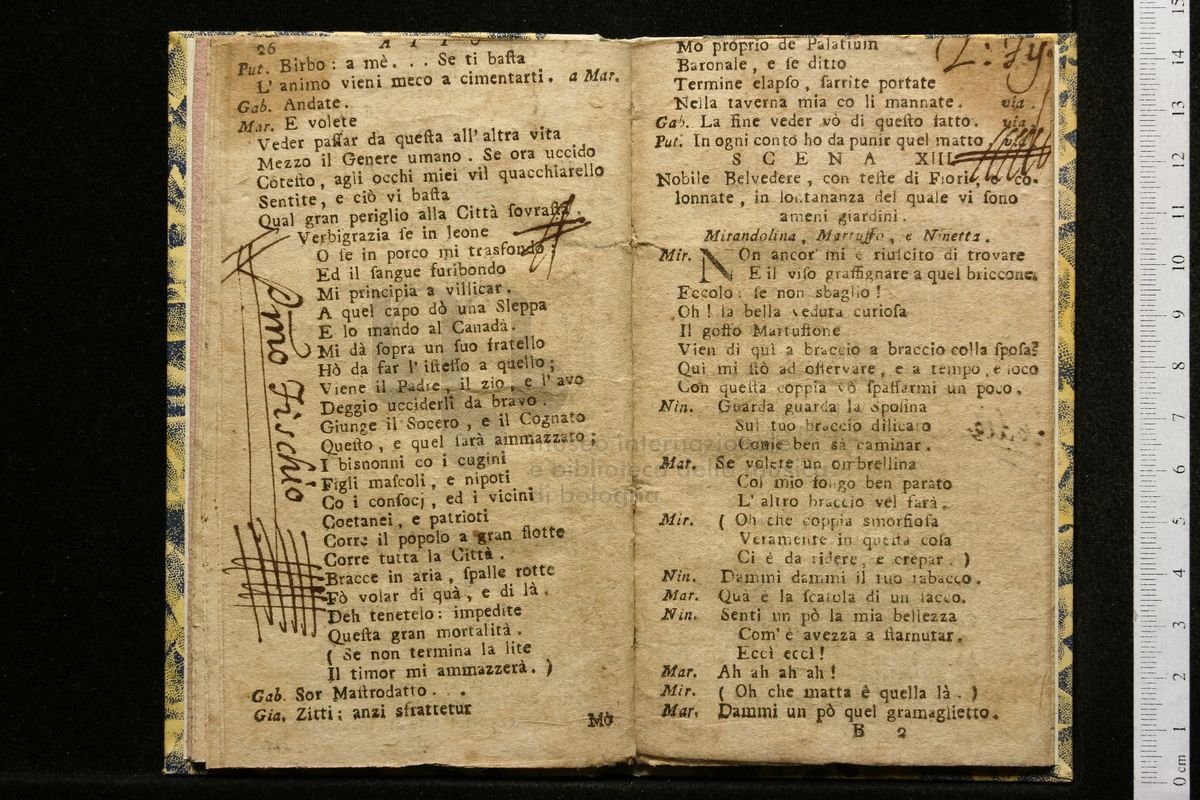 26
Put. Birbo: a mè... Se ti baſta
L' animo vieni meco a cimentarti. a Mar.
Gab. Andate.
Mar. E volete
Veder paſſar da queſta all' altra vita
Mezzo il Genere umano. Se ora uccido
Coteſto, agli occhi miei vil quacchiarello
Sentite, e ciò vi baſta
Qual gran periglio alla Città ſovraſta.
Verbigrazia ſe in leone
O ſe in porco mi trasfondo:
Ed il ſangue furibondo
Mi principia a villicar.
A quel capo dò una Sleppa
E lo mando al Canadà.
Mi dà ſopra un ſuo fratello
Hò da far l' iſteſſo a quello;
Viene il Padre, il zio, e l' avo
Deggio ucciderli da bravo.
Giunge il Socero, e il Cognato
Queſto, e quel ſarà ammazzato;
I bisnonni co i cugini
Figli maſcoli, e nipoti
Co i conſocj, ed i vicini
Coetanei, e patrioti
Corre il popolo a gran flotte
Corre tutta la Città.
Bracce in aria, ſpalle rotte
Fò volar di quà, e di là.
Deh tenetelo: impedite
Queſta gran mortalità.
( Se non termina la lite
Il timor mi ammazzerà. )
Gab. Sor Maſtrodatto...
Gia. Zitti; anzi sfrattetur
Mò
Pmo Fischio
Mo proprio de Palatium
Baronale, e ſe ditto
Termine elapſo, ſarrite portate
Nella taverna mia co li mannate. via.
Gab. La fine veder vò di queſto fatto. via.
Put. In ogni conto ho da punir quel matto. via.
SCENA XIII.
Nobile Belvedere, con teſte di Fiori, e co-
lonnate, in lontananza del quale vi ſono
ameni giardini.
Mirandolina, Martuffo, e Ninetta.
Mir. NOn ancor mi è riuſcito di trovare
E il viſo graffignare a quel briccone.
Eccolo: ſe non sbaglio!
Oh! la bella veduta curioſa
Il goffo Martuffone
Vien di quì a braccio a braccio colla ſpoſa?
Quì mi ſtò ad oſſervare, e a tempo, e loco
Con queſta coppia vò ſpaſſarmi un poco.
Nin. Guarda guarda la Spoſina
Sul tuo braccio dilicato
Come ben sà caminar.
Mar. Se volete un ombrellina
Col mio fongo ben parato
L' altro braccio vel farà.
Mir. ( Oh che coppia smorfioſa
Veramente in queſta coſa
Ci è da ridere, e crepar. )
Nin. Dammi dammi il tuo tabacco.
Mar. Quà è la ſcatola di un tacco.
Nin. Senti un pò la mia bellezza
Com' è avezza a ſtarnutar.
Eccì eccì!
Mar. Ah ah ah ah!
Mir. ( Oh che matta è quella là. )
Mar. Dammi un pò quel gramaglietto.
B 2
museo internazionale
e biblioteca della musica
di bologna